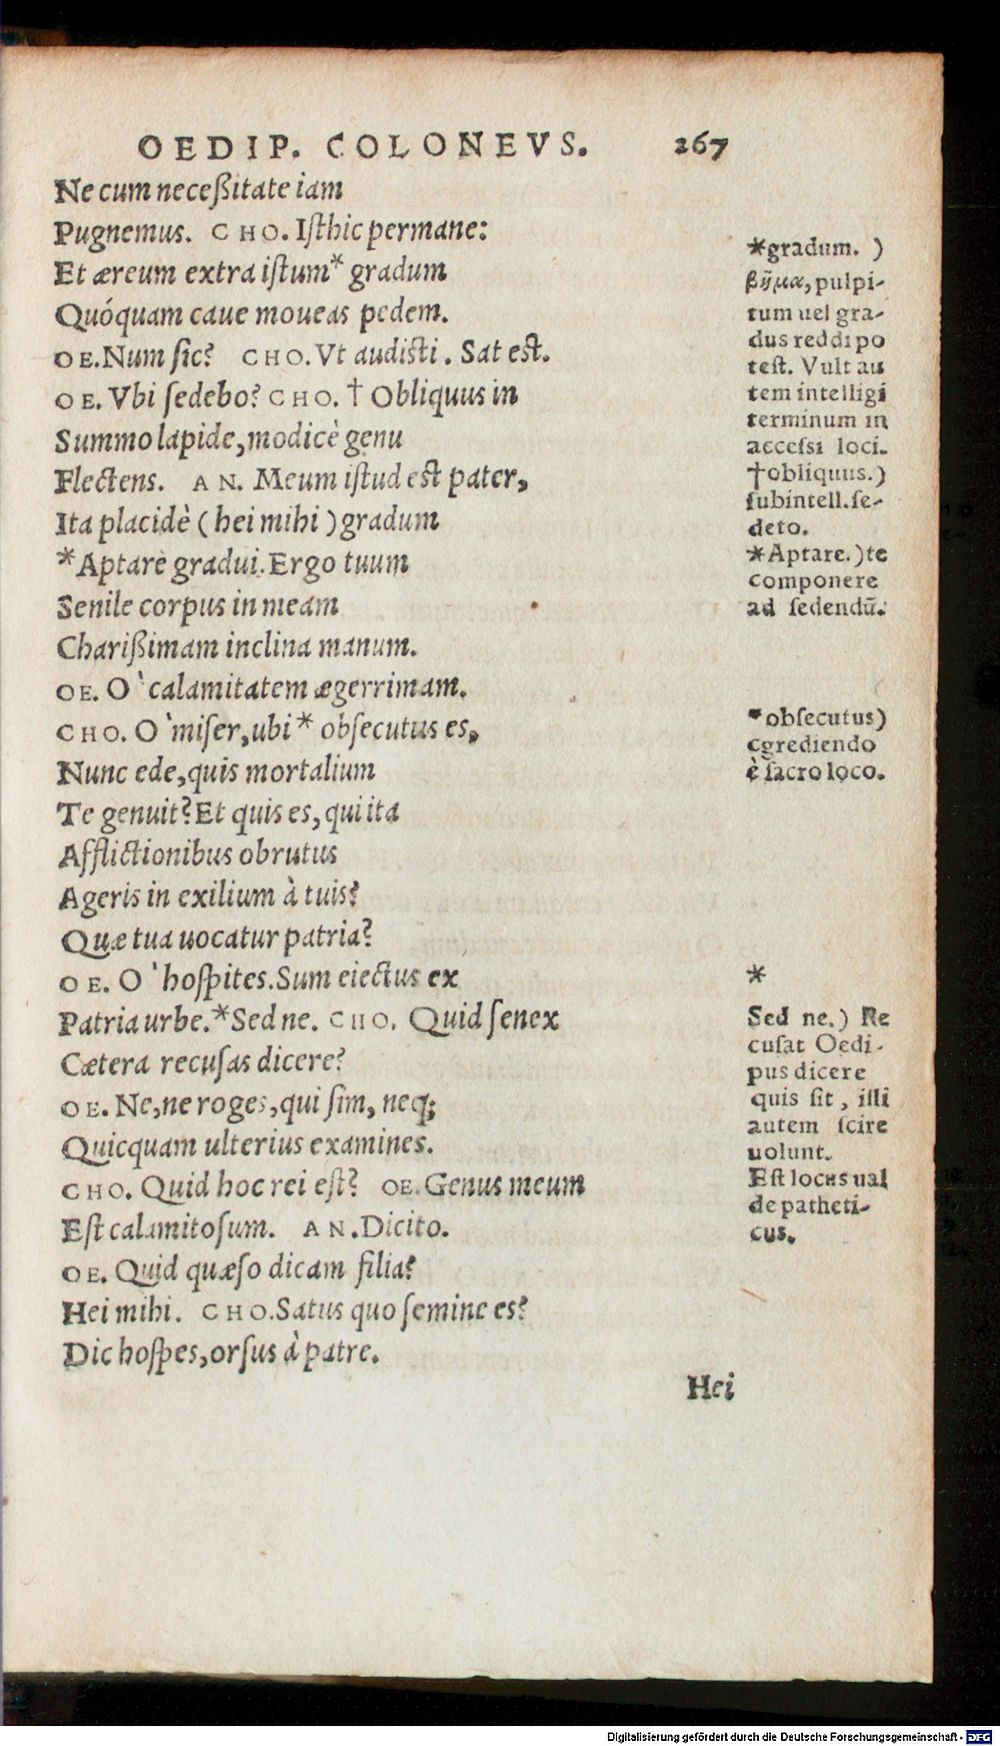 OEDIP. COLONEVS. 267
Ne cum neceßitate iam
Pugnemus. CHO. Iſthic permane:
Et æreum extra iſtum* gradum
Quóquam caue moueas pedem.
OE. Num ſic? CHO. Vt audiſti. Sat eſt.
OE. Vbi ſedebo? CHO. † Obliquus in
Summo lapide, modicè genu
Flectens. AN. Meum iſtud eſt pater,
Ita placidè (hei mihi) gradum
*Aptare gradui. Ergo tuum
Senile corpus in meam
Charißimam inclina manum.
OE. O` calamitatem ægerrimam.
CHO. O` miſer, ubi* obſecutus es,
Nunc ede, quis mortalium
Te genuit? Et quis es, qui ita
Afflictionibus obrutus
Ageris in exilium à tuis?
Quæ tua uocatur patria?
OE. O` hoſpites. Sum eiectus ex
Patria urbe.* Sed ne. CHO. Quid ſenex
Cætera recuſas dicere?
OE. Ne, ne roges, qui ſim, neq;
Quicquam ulterius examines.
CHO. Quid hoc rei eſt? OE. Genus meum
Eſt calamitoſum. AN. Dicito.
OE. Quid quæſo dicam filia?
Hei mihi. CHO. Satus quo ſemine es?
Dic hoſpes, orſus à patre.
Hei
*gradum. )
βῆμα, pulpi-
tum uel gra-
dus reddi po
teſt. Vult au
tem intelligi
terminum in
acceſsi loci.
†obliquus.)
ſubintell. ſe-
deto.
*Aptare.) te
componere
ad ſedendū.
*obſecutus)
egrediendo
è ſacro loco.
*
Sed ne.) Re
cuſat Oedi-
pus dicere
quis ſit, illi
autem ſcire
uolunt.
Eſt locus ual
de patheti-
cus.
Digitalisierung gefördert durch die Deutsche Forschungsgemeinschaft - DFG